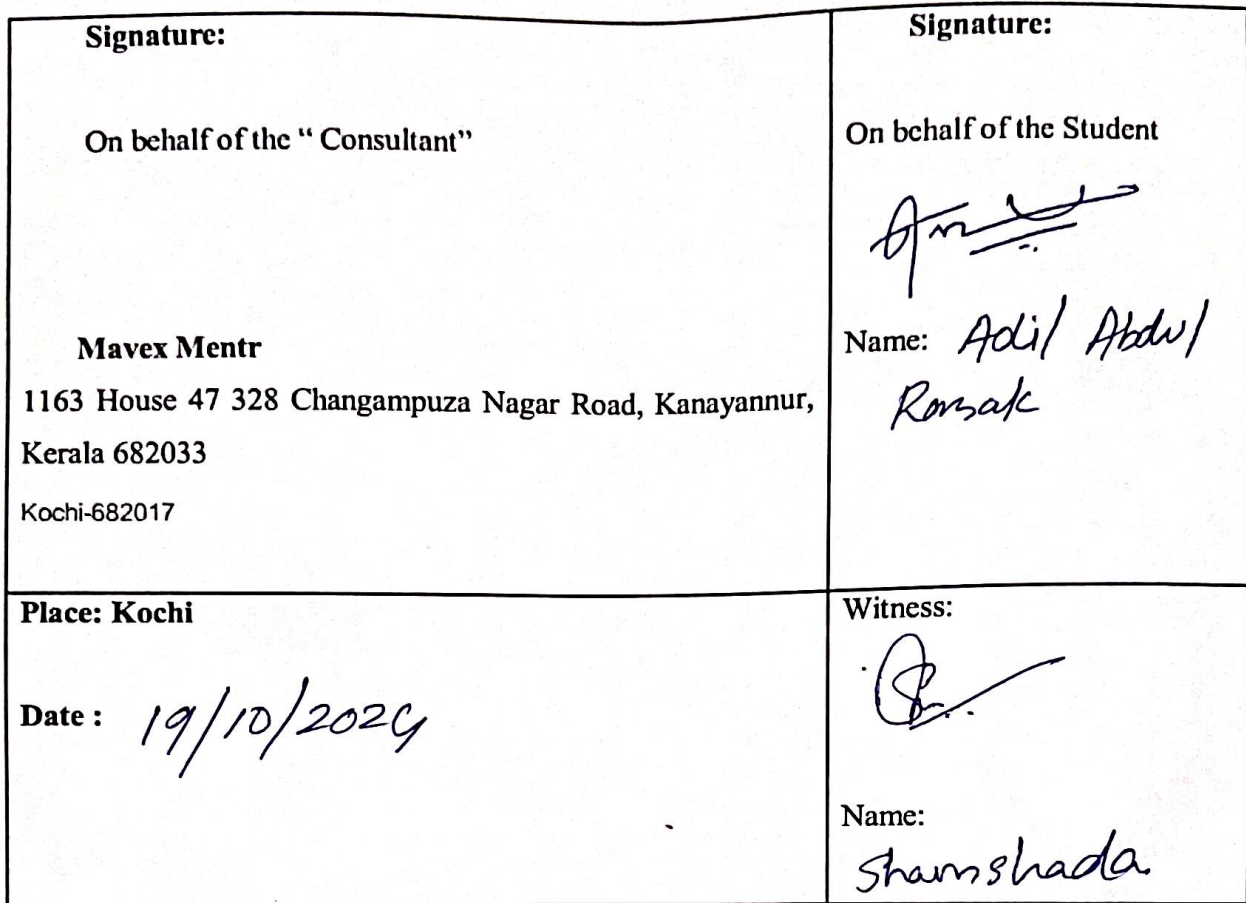 Signature:
On behalf of the “ Consultant”
Mavex Mentr
1163 House 47 328 Changampuza Nagar Road, Kanayannur,
Kerala 682033
Kochi-682017
Signature:
On behalf of the Student
Name: Adil Abdul
Razak
Place: Kochi
Date : 19/10/2024
Witness:
Name:
Shamshada